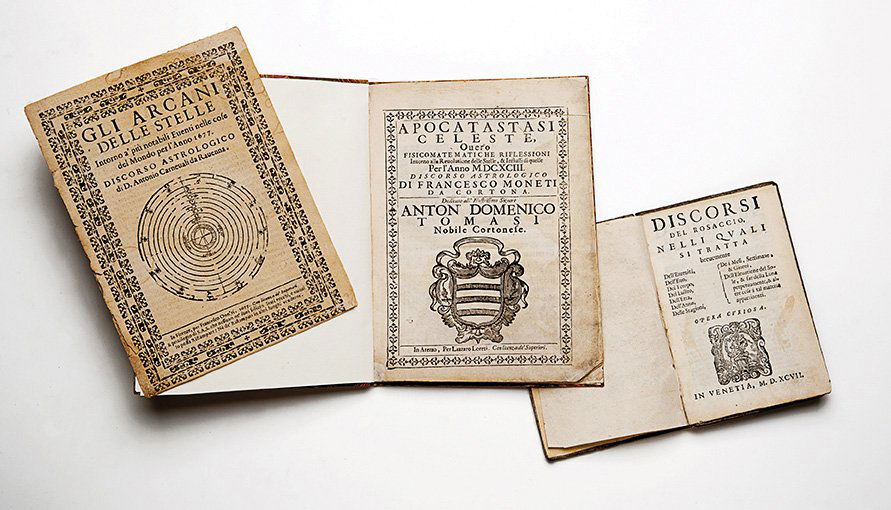 GLI ARCANI
DELLE STELLE
Intorno a' più notabili Euenti nelle cose
del Mondo per l'Anno 1677.
DISCORSO ASTROLOGICO
di D. Antonio Carneuali da Rauenna.
APOCATASTASI
CELESTE,
Ouero
FISICOMATEMATICHE RIFLESSIONI
Intorno alla Reuolutione delle Stelle, & Influssi di quelle
Per l'Anno M.DCXCIII.
DISCORSO ASTROLOGICO
DI FRANCESCO MONETI
DA CORTONA.
Dedicato all'
ANTON DOMENICO
TOMASI
Nobile Cortonese.
In Arezzo, Per Lazzaro Loreti. Con licenza de' Superiori.
DISCORSI
DEL ROSACCIO,
NELLI QVALI
SI TRATTA
breuemente
Dell'Eternità,
Dell'Euo,
Del Tempo,
Del Lustro,
Dell'Era,
Dell'Anno,
Delle Stagioni,
De i Mesi, Settimane,
& Giorni,
Dell'Eleuatione del So-
le, & far della Luna
perpetuamente, & al-
tre cose a tal materia
appartinenti.
OPERA CVRIOSA.
IN VENETIA, M. D. XCVII.